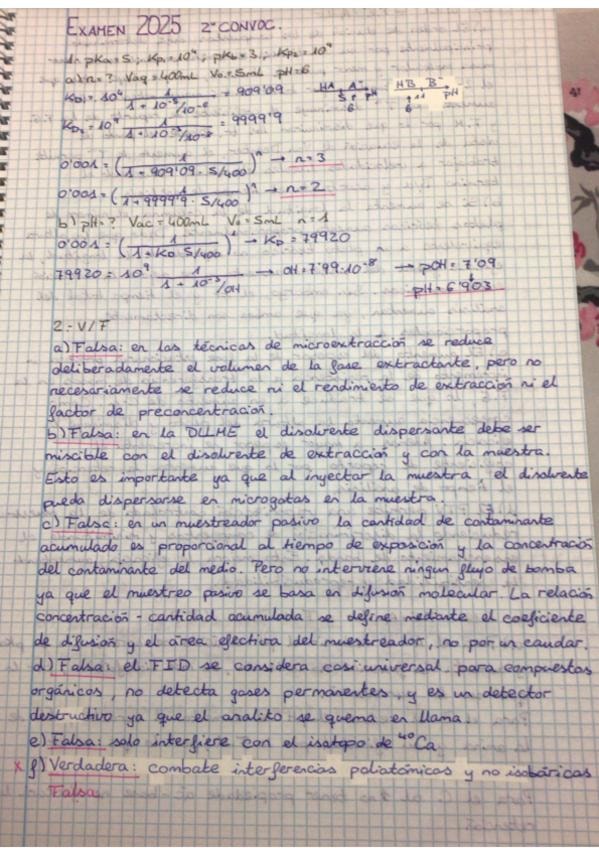 EXAMEN 2025 2ª CONVOC.
1.- pKa = 5 ; KD₁ = 10⁴ ; pKb = 3 ; KD₂ = 10⁴
a) n = ? Vaq = 400mL Vo = 5mL pH = 6
KD₁ = 10⁴ 1 / 1 + 10⁻⁵/10⁻⁶ = 909'09 HA A⁻ 5 6 pH HB B⁻ 11 6 pH
KD₂ = 10⁴ 1 / 1 + 10⁻³/10⁻⁸ = 9999'9
0'001 = (1 / 1 + 909'09 · 5/400)ⁿ → n = 3
0'001 = (1 / 1 + 9999'9 · 5/400)ⁿ → n = 2
b) pH = ? Vac = 400mL Vo = 5mL n = 1
0'001 = (1 / 1 + KD 5/400)¹ → KD = 79920
79920 = 10⁴ 1 / 1 + 10⁻³/OH → OH = 7'99·10⁻⁸ → pOH = 7'09
pH = 6'903
2.- V/F
a) Falsa: en las técnicas de microextracción se reduce
deliberadamente el volumen de la fase extractante, pero no
necesariamente se reduce ni el rendimiento de extracción ni el
factor de preconcentración.
b) Falsa: en la DLLME el disolvente dispersante debe ser
miscible con el disolvente de extracción y con la muestra.
Esto es importante ya que al inyectar la muestra, el disolvente
pueda dispersarse en microgotas en la muestra.
c) Falsa: en un muestreador pasivo la cantidad de contaminante
acumulado es proporcional al tiempo de exposición y la concentración
del contaminante del medio. Pero no interviene ningun flujo de bomba
ya que el muestreo pasivo se basa en difusión molecular. La relación
concentración - cantidad acumulada se define mediante el coeficiente
de difusión y el área efectiva del muestreador, no por un caudar.
d) Falsa: el FID se considera casi universal para compuestos
orgánicos, no detecta gases permanentes, y es un detector
destructivo ya que el analito se quema en llama.
e) Falsa: solo interfiere con el isotopo de ⁴⁰Ca
x f) Verdadera: combate interferencias poliatómicas y no isobáricas
Falsa